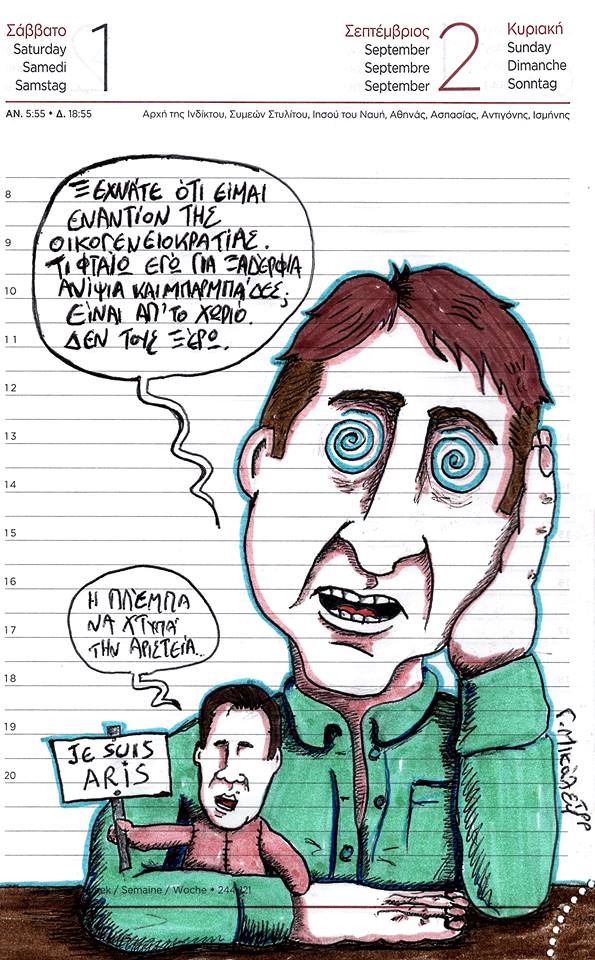 Σάββατο
Saturday
Samedi
Samstag
1
Σεπτέμβριος
September
Septembre
September
2
Κυριακή
Sunday
Dimanche
Sonntag
ΑΝ. 5:55 • Δ. 18:55
Αρχή της Ινδίκτου, Συμεών Στυλίτου, Ιησού του Ναυή, Αθηνάς, Ασπασίας, Αντιγόνης, Ισμήνης
8
9
10
11
12
13
14
15
16
17
18
19
20
ΞΕΧΝΑΤΕ ΌΤΙ ΕΙΜΑΙ
ΕΝΑΝΤΙΟΝ ΤΗΣ
ΟΙΚΟΓΕΝΕΙΟΚΡΑΤΙΑΣ.
ΤΙ ΦΤΑΙΩ ΕΓΩ ΓΙΑ ΞΑΔΕΡΦΙΑ
ΑΝΙΨΙΑ ΚΑΙ ΜΠΑΡΜΠΑΔΕΣ;
ΕΙΝΑΙ ΑΠ' ΤΟ ΧΩΡΙΟ.
ΔΕΝ ΤΟΥΣ ΞΕΡΩ.
Η ΠΛΕΜΠΑ
ΝΑ ΧΤΥΠΑ
ΤΗΝ ΑΡΙΣΤΕΙΑ..
JE SUIS
ARIS
ek / Semaine / Woche • 244 121